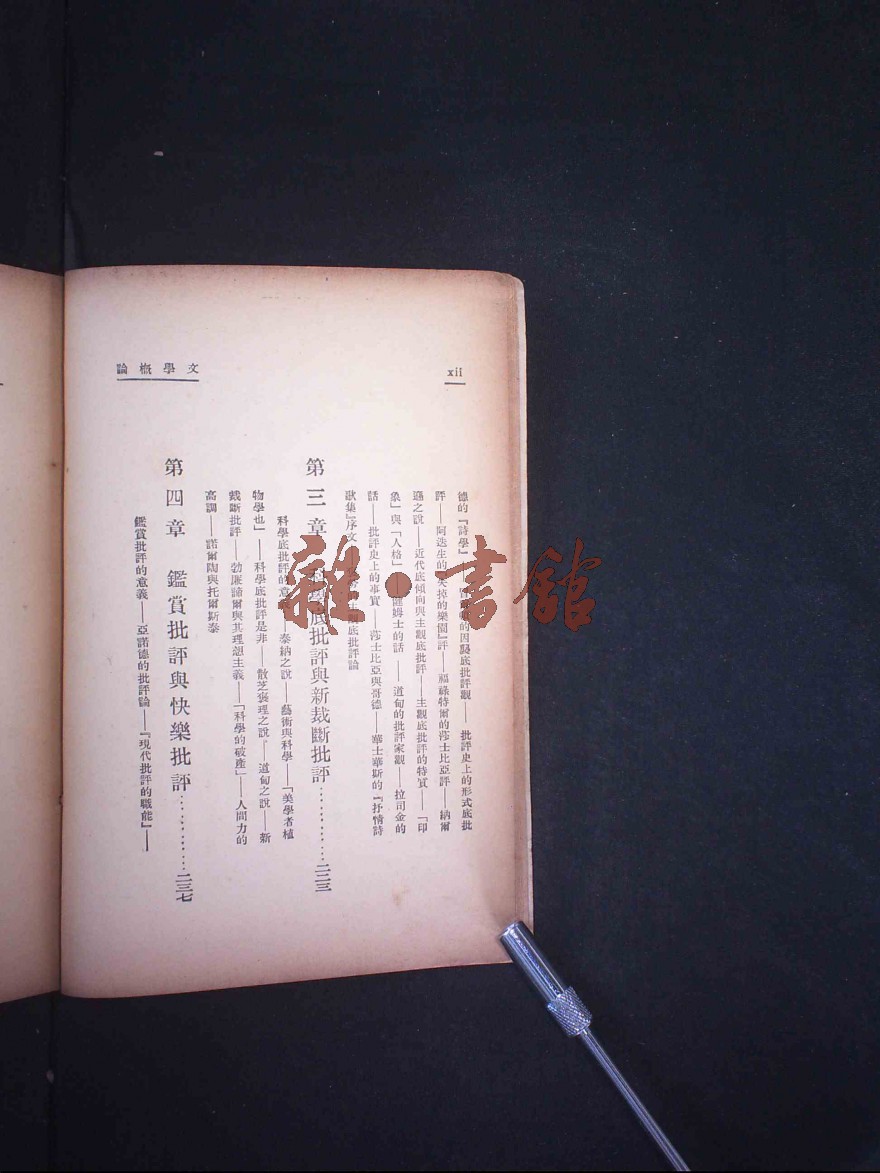 xii
文學概論
德的『詩學』的因襲底批評觀——批評史上的形式底批
評——阿迭生的『失掉的樂園』評——福祿特爾的莎士比亞評——納爾
遜之說——近代底傾向與主觀底批評——主觀底批評的特質——「印
象」與「人格」——詹姆士的話——道甸的批評家觀——拉司金的
話——批評史上的事實——莎士比亞與哥德——華士華斯的『抒情詩
歌集』序文——主觀底批評論
第三章 科學底批評與新裁斷批評…………二二三
科學底批評的意義——泰納之說——藝術與科學——「美學者植
物學也」——科學底批評是非——散芝褒理之說——道甸之說——新
裁斷批評——勃廉諦爾與其理想主義——「科學的破產」——人間力的
高調——諾爾陶與托爾斯泰
第四章 鑑賞批評與快樂批評…………二三七
鑑賞批評的意義——亞諾德的批評論——『現代批評的職能』——
雜·書館